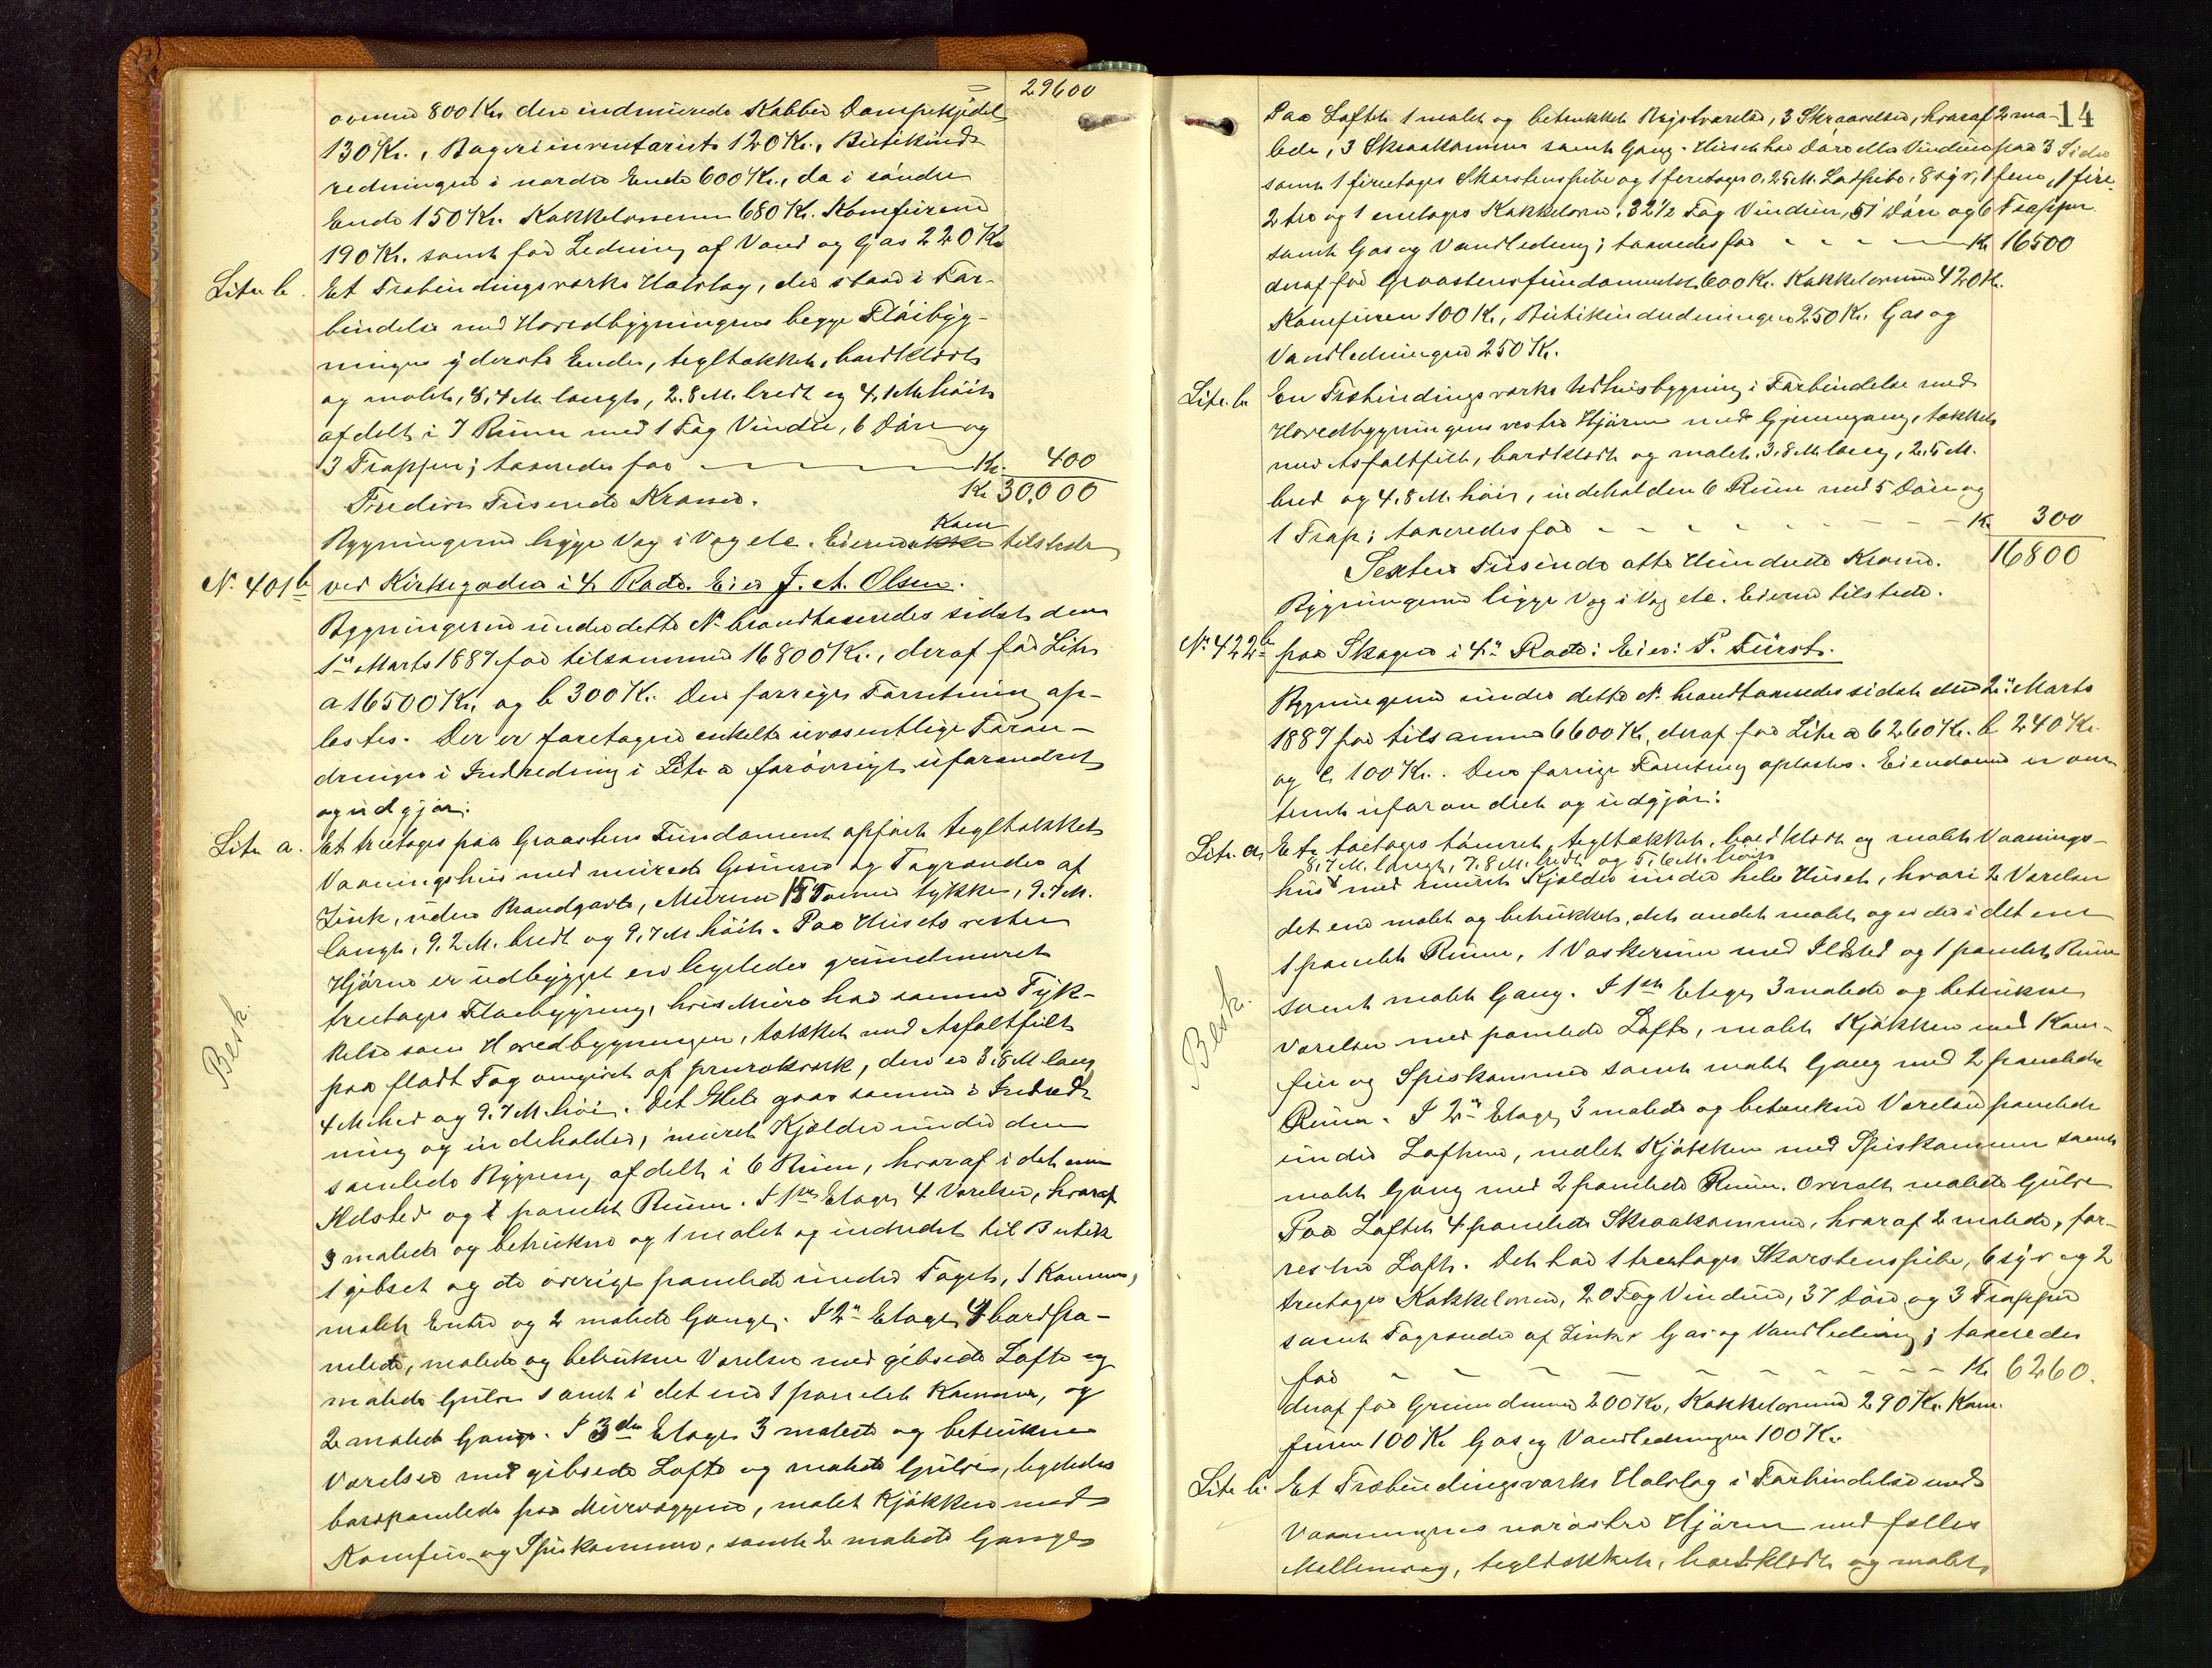 29600
ovnene 800 Kr. den indmurede Kobber Dampekjedel
130 Kr., Bageriinventariet 120 Kr., Butikind-
redningen i nordre Ende 600 Kr., do i søndre
Ende 150 Kr. Kakkelovnene 680 Kr. Komfurene
190 Kr. samt for Ledning af Vand og Gas 220 Kr.
Litr. b. Et Træbindingsværks Halvtag, der staar i For-
bindelse med Hovedbygningens begge Fløibyg-
ninger yderste Ender, tegltækket, bordklædt
og malet, 8,4 M. langt, 2.8 M. bredt og 4,1 M. høit
afdelt i 7 Rum med 1 Fag Vindu, 6 Døre og
3 Trapper; taxeredes for Kr. 400
Tredive Tusende Kroner. Kr. 30,000
Bygningerne ligge Væg i Væg etc. Eieren ikke Kom tilstede
N. 401b ved Kirkegaden i 4 Rode. Eier J. A. Olsen.
Bygningerne under dette N. brandtaxeredes sidst den
1ste Marts 1887 for tilsammen 16800 Kr., deraf for Litr.
a 16500 Kr. og b 300 Kr. Den forrige Forretning op-
læstes. Der er foretagen enkelte uvæsentlige Foran-
dringer i Indredning i Litr. a forøvrigt uforandret
og udgjør:
Litr. a. Et treetages paa Graasten Fundament opført tegltækket
Vaaningshus med murede Gesimser og Tagrender af
Zink, uden Brandgavle, Murene 15 Tommer tykke, 9.7 M.
langt, 9.2 M. bredt og 9,7 M. høit. Paa Husets vestre
Hjørne er udbygget en ligeledes grundmuret
treetages Fløibygning, hvis Mure har samme Tyk-
kelse som Hovedbygningen, tækket med Asfaltfilt
Besk.
paa fladt Tag omgivet af murværk, den er 3.8 M. lang
4 M. bred og 9.7 M. høi. Det Hele gaar sammen i Indred-
ning og indeholder, muret Kjælder under den
samlede Bygning afdelt i 6 Rum, hvoraf i det ene
Ildsted og 1 panelt Rum. I 1ste Etage 4 Værelser, hvoraf
3 malede og betrukne og 1 malet og indredet til Butik
1 gibset og de øvrige panelede under Taget, 1 Kammer,
malet Entre og 2 malede Gange. I 2den Etage 4 bordpa-
nelede, malede og betrukne Værelser med gibsede Lofte og
malede Gulve samt i det ene 1 panelet Kammer, og
2 malede Gange. I 3die Etage 3 malede og betrukne
Værelser med gibsede Lofte og malede Gulve, ligeledes
bordpanelede paa Murvæggene, malet Kjøkken med
Komfur og Spiskammer, samt 2 malede Gange
14
Paa Loftet 1 malet og betrukket Kvistværelse, 3 Skraavelser, hvoraf 2 ma-
lede, 3 Skraakammer samt Gang. Huset har Døre eller Vinduer paa 3 Sider
samt 1 fireetages Skorstenspibe og 1 fireetages 0.25 M. Ladpibe, 8 syv, 1 fem, 1 fire
2 tre og 1 enetages Kakkelovne, 32 1/2 Fag Vinduer, 51 Døre og 6 Trapper
samt Gas og Vandledning; taxeredes for Kr. 16500
deraf for Graastensfundamentet 600 Kr. Kakkelovnene 420 Kr.
Komfuren 100 Kr., Butikindredningen 250 Kr. Gas og
Vandledningen 250 Kr.
Litr. b En Træbindingsværks Udhusbygning i Forbindelse med
Hovedbygningens vestre Hjørne med Gjennemgang, tækket
med Asfaltfilt, bordklædt og malet, 3.8 M. lang, 2.5 M.
bred og 4.8 M. høi, indeholdende 6 Rum med 5 Døre og
1 Trap; taxeredes for Kr. 300
Sexten Tusinde otte Hundrede Kroner. 16800
Bygningerne ligge Væg i Væg etc. Eieren tilstede.
N. 422b paa Skagen i 4de Rode: Eier: P. Fürst.
Bygningerne under dette N. brandtaxeredes sidst den 2den Marts
1887 for tilsammen 6600 Kr. deraf for Litr. a 6260 Kr. b 240 Kr.
og c 100 Kr. Den forrige Forretning oplæstes. Eiendommen er om-
trent uforandret og udgjør:
Litr. a. Et toetages tømret, tegltækket, bordklædt og malet Vaanings-
8,7 M. langt, 7.8 M. bredt og 5,6 M. høit
hus med muret Kjælder under hele Huset, hvori 2 Værelser
det ene malet og betrukket, det andet malet, og er der i det ene
1 panelet Rum, 1 Vaskerum med Ildsted og 1 panelet Rum
Besk.
samt malet Gang. I 1ste Etage 3 malede og betrukne
Værelser med panelede Lofte, malet Kjøkken med Kom-
fur og Spiskammer samt malet Gang med 2 panelede
Rum. I 2den Etage 3 malede og betrukne Værelser panelede
under Loftene, malet Kjøkken med Spiskammer samt
malet Gang med 2 panelede Rum. Overalt malede Gulve
Paa Loftet 4 panelede Skraakammer, hvoraf 2 malede, for-
resten Loft. Det har 1 treetages Skorstenspibe, 6 syv og 2
treetages Kakkelovne, 20 Fag Vinduer, 37 Døre og 3 Trapper
samt Tagrender af Zink & Gas og Vandledning; taxeredes
for Kr. 6260.
deraf for Grundmuren 200 Kr., Kakkelovnene 290 Kr. Kom-
furene 100 Kr. Gas og Vandledningen 100 Kr.
Litr. b. Et Træbindingsværks Halvtag i Forbindelse med
Vaaningens nordøstre Hjørne med fælles
Mellemvæg, tegltækket, bordklædt og malet,